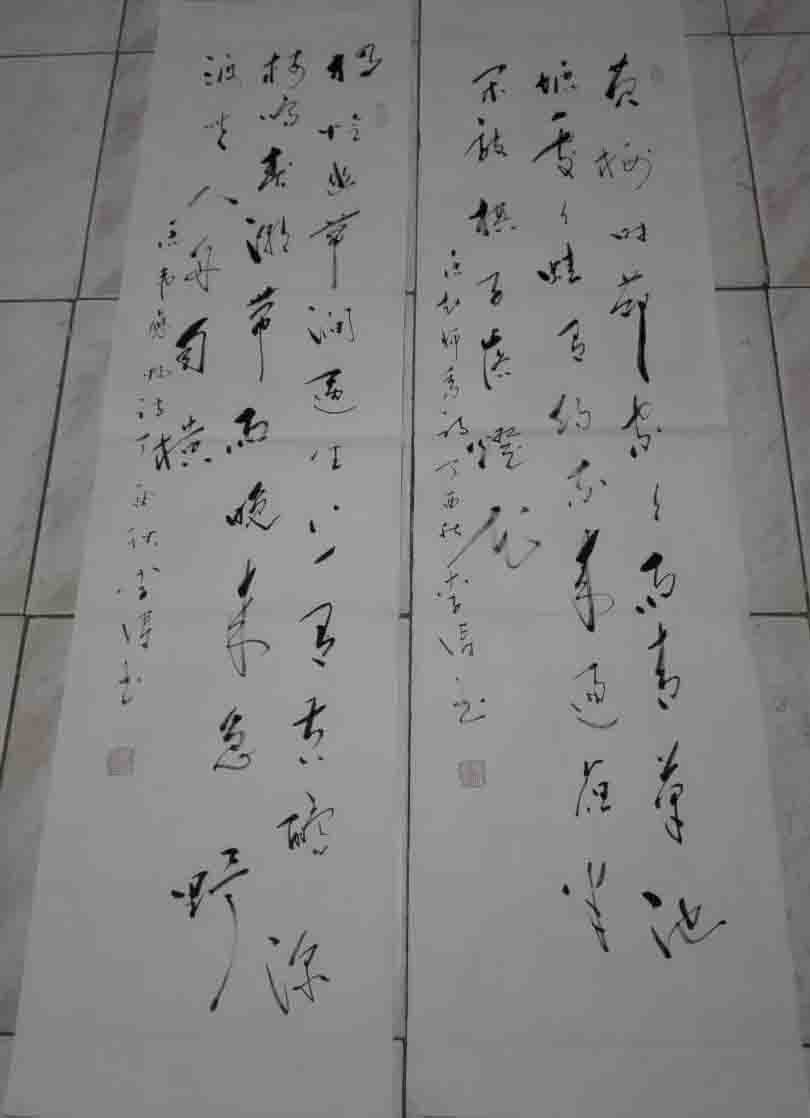 黄梅时節家々雨青草池
塘处々蛙有约不来过夜半
闲敲棋子落燈花
录赵师秀诗丁酉秋李涛书
独怜幽草涧边生上有黄鹂深
树鸣春潮带雨晚来急野
渡无人舟自横
录韦应物诗丁酉秋李涛书